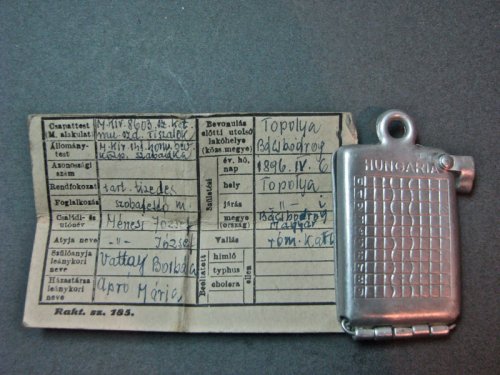 Csapattest
M. alakulat
M. kir. 8603. sz. kat.
Állomány-
test
közp. szabadka
Azonossági
szám
Rendfokozat
tart. tizedes
Foglalkozás
szobafestő m.
Családi- és
utóév
Ménesi József
Atyja neve
-"- József
Szülőanyja
leánykori
neve
Vattay Borbála
Házastársa
leánykori
neve
Apró Mária
Rakt. sz. 185.
Bevonulás
előtti utolsó
lakóhelye
(közs. megye)
Topolya
Bácsbodrog
Születési
év, hó,
nap
1896. IV. 6
hely
Topolya
járás
-"-
megye
(ország)
Bácsbodrog
Magyar
Vallás
róm. kath.
Beoltatott
himlő
typhus
cholera
ellen
HUNGARIA